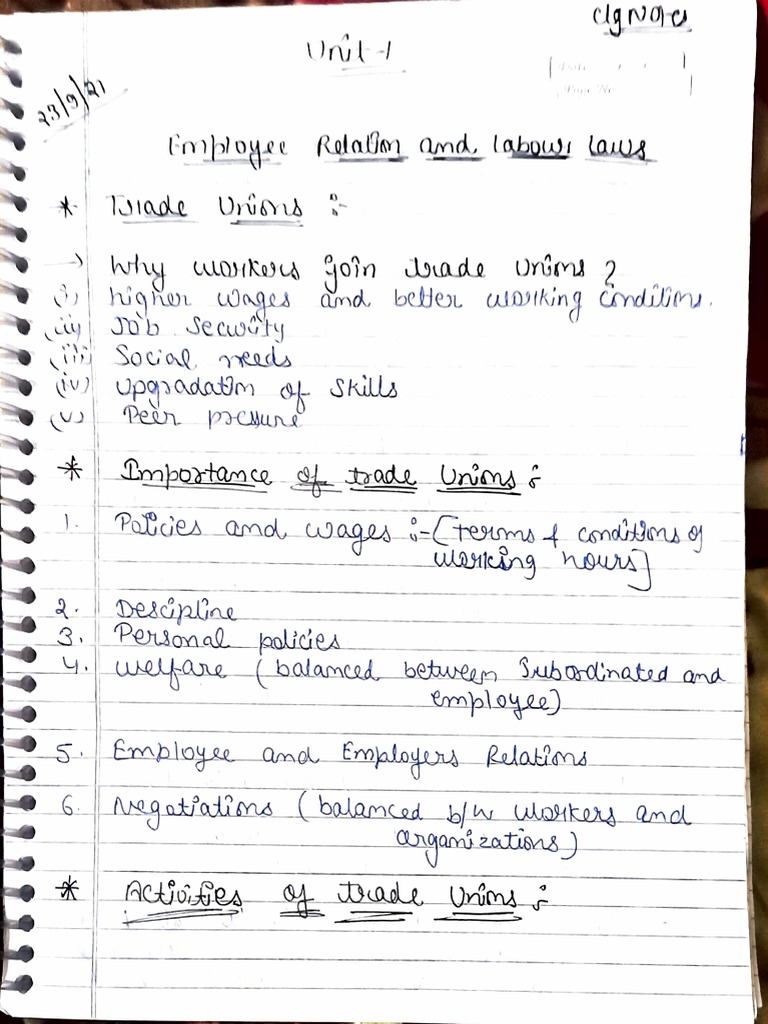 Unit-1
23/9/21
Employee Relation and Labour Laws
* Trade Unions :-
→ Why workers join trade unions ?
(i) higher wages and better working conditions.
(ii) Job security
(iii) Social needs
(iv) Upgradation of skills
(v) Peer pressure
* Importance of trade Unions :
1. Policies and wages :- [terms & conditions of
working hours]
2. Descipline
3. Personal policies
4. Welfare (balanced between Subordinated and
employee)
5. Employee and Employers Relations
6. Negotiations (balanced b/w workers and
organizations)
* Activities of trade Unions :